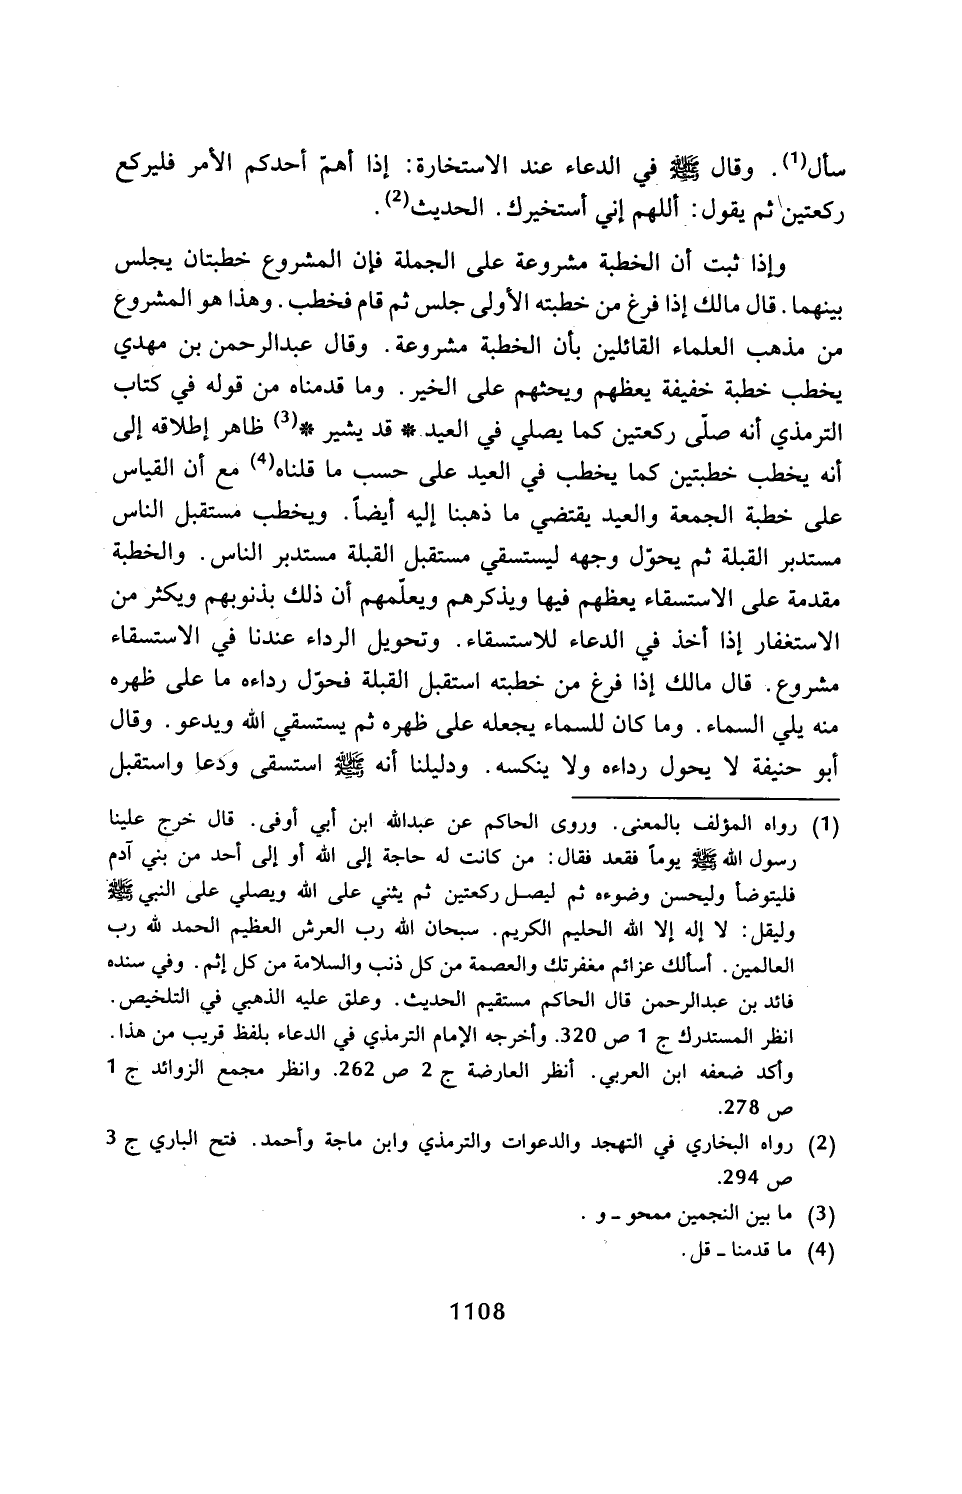 سأل(1). وقال ﷺ في الدعاء عند الاستخارة: إذا أهمّ أحدكم الأمر فليركع
ركعتين ثم يقول: أللهم إني أستخيرك. الحديث(2).
وإذا ثبت أن الخطبة مشروعة على الجملة فإن المشروع خطبتان يجلس
بينهما. قال مالك إذا فرغ من خطبته الأولى جلس ثم قام فخطب. وهذا هو المشروع
من مذهب العلماء القائلين بأن الخطبة مشروعة. وقال عبدالرحمن بن مهدي
يخطب خطبة خفيفة يعظهم ويحثهم على الخير. وما قدمناه من قوله في كتاب
الترمذي أنه صلّى ركعتين كما يصلي في العيد * قد يشير *(3) ظاهر إطلاقه إلى
أنه يخطب خطبتين كما يخطب في العيد على حسب ما قلناه(4) مع أن القياس
على خطبة الجمعة والعيد يقتضي ما ذهبنا إليه أيضاً. ويخطب مستقبل الناس
مستدبر القبلة ثم يحوّل وجهه ليستسقي مستقبل القبلة مستدبر الناس. والخطبة
مقدمة على الاستسقاء يعظهم فيها ويذكرهم ويعلّمهم أن ذلك بذنوبهم ويكثر من
الاستغفار إذا أخذ في الدعاء للاستسقاء. وتحويل الرداء عندنا في الاستسقاء
مشروع. قال مالك إذا فرغ من خطبته استقبل القبلة فحوّل رداءه ما على ظهره
منه يلي السماء. وما كان للسماء يجعله على ظهره ثم يستسقي الله ويدعو. وقال
أبو حنيفة لا يحول رداءه ولا ينكسه. ودليلنا أنه ﷺ استسقى ودعا واستقبل
(1) رواه المؤلف بالمعنى. وروى الحاكم عن عبدالله ابن أبي أوفى. قال خرج علينا
رسول الله ﷺ يوماً فقعد فقال: من كانت له حاجة إلى الله أو إلى أحد من بني آدم
فليتوضأ وليحسن وضوءه ثم ليصل ركعتين ثم يثني على الله ويصلي على النبي ﷺ
وليقل: لا إله إلا الله الحليم الكريم. سبحان الله رب العرش العظيم الحمد لله رب
العالمين. أسألك عزائم مغفرتك والعصمة من كل ذنب والسلامة من كل إثم. وفي سنده
فائد بن عبدالرحمن قال الحاكم مستقيم الحديث. وعلق عليه الذهبي في التلخيص.
انظر المستدرك ج 1 ص 320. وأخرجه الإمام الترمذي في الدعاء بلفظ قريب من هذا.
وأكد ضعفه ابن العربي. أنظر العارضة ج 2 ص 262. وانظر مجمع الزوائد ج 1
ص 278.
(2) رواه البخاري في التهجد والدعوات والترمذي وابن ماجة وأحمد. فتح الباري ج 3
ص 294.
(3) ما بين النجمين ممحو ـ و .
(4) ما قدمنا ـ قل.
1108